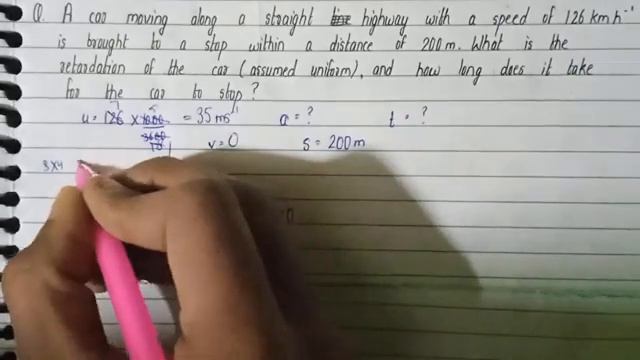 Q. A car moving along a straight highway with a speed of 126 km h⁻¹
is brought to a stop within a distance of 200 m. What is the
retardation of the car (assumed uniform), and how long does it take
for the car to stop?
u = 126 × 1000 = 35 ms⁻¹ a = ? t = ?
3600 v = 0 s = 200 m